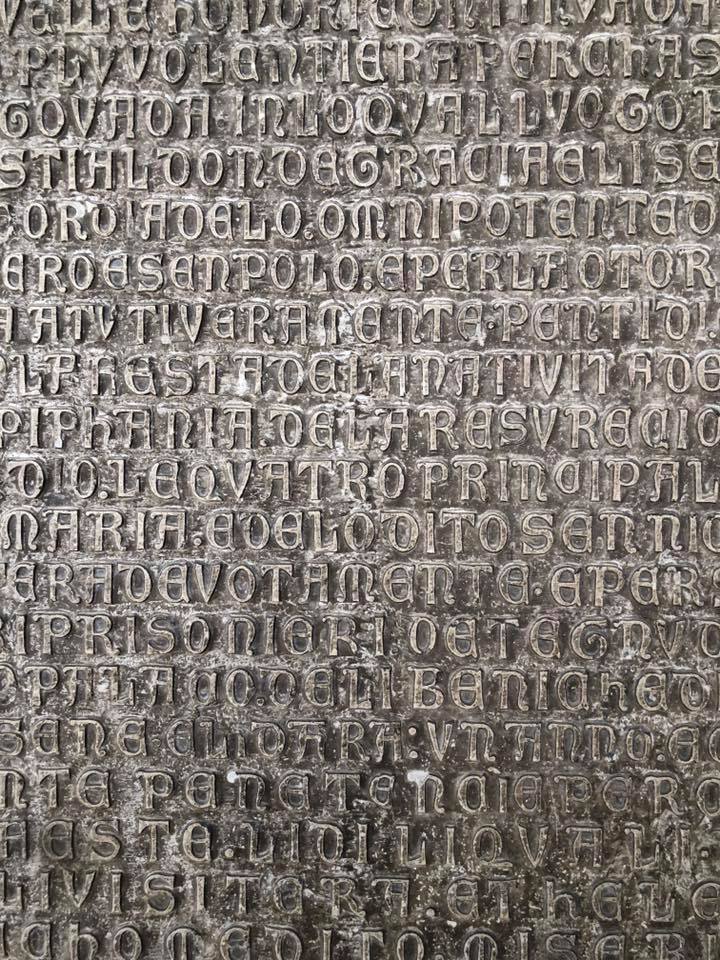 PLV VOLENTIERA PERChAS
GOVADA INLOQVAL LVOGO
STIAL DON DE GRACIA ELI SE
ADELO.OMNIPOTENTE D
ERO E SENPOLO.E PERLA OTOR
ATVTI VERAMENTE.PENTIDI.
FESTA DE LA NATIVITA DE
PIPhANIA.DE LA RESVRECIO
DIO.LE QVATRO PRINCIPAL
MARIA.E DE LO DITO SEN NIC
ERA DEVOTAMENTE.E PER
I PRISONIERI DETEGNVD
PALACO.DE LI BENICHE D
SENE ELI DARA:VN ANNO.E
NTE PENETENCIE PER
ESTE.LI DI LI QVALI.
LI VISITERA.ET hELE
ChOMEDITO.MISERI